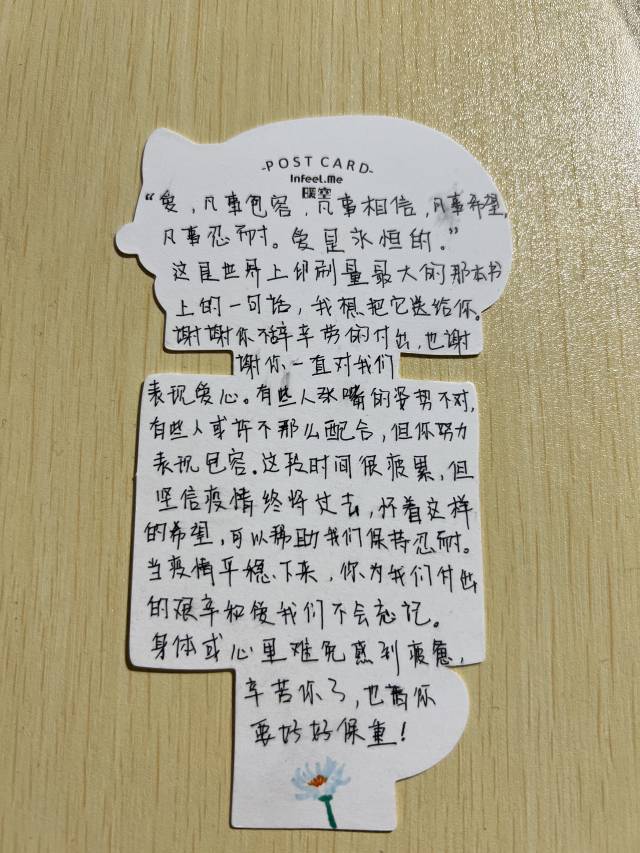 -POST CARD-
Infeel.Me
暖空
“爱，凡事包容，凡事相信，凡事希望，
凡事忍耐。爱是永恒的。”
这是世界上印刷量最大的那本书
上的一句话，我想把它送给你。
谢谢你不辞辛劳的付出，也谢
谢你一直对我们
表现爱心。有些人张嘴的姿势不对，
有些人或许不那么配合，但你努力
表现包容。这段时间很疲累，但
坚信疫情终将过去，怀着这样
的希望，可以帮助我们保持忍耐。
当疫情平稳下来，你为我们付出
的艰辛和爱我们不会忘记。
身体或心里难免感到疲惫，
辛苦你了，也请你
要好好保重！